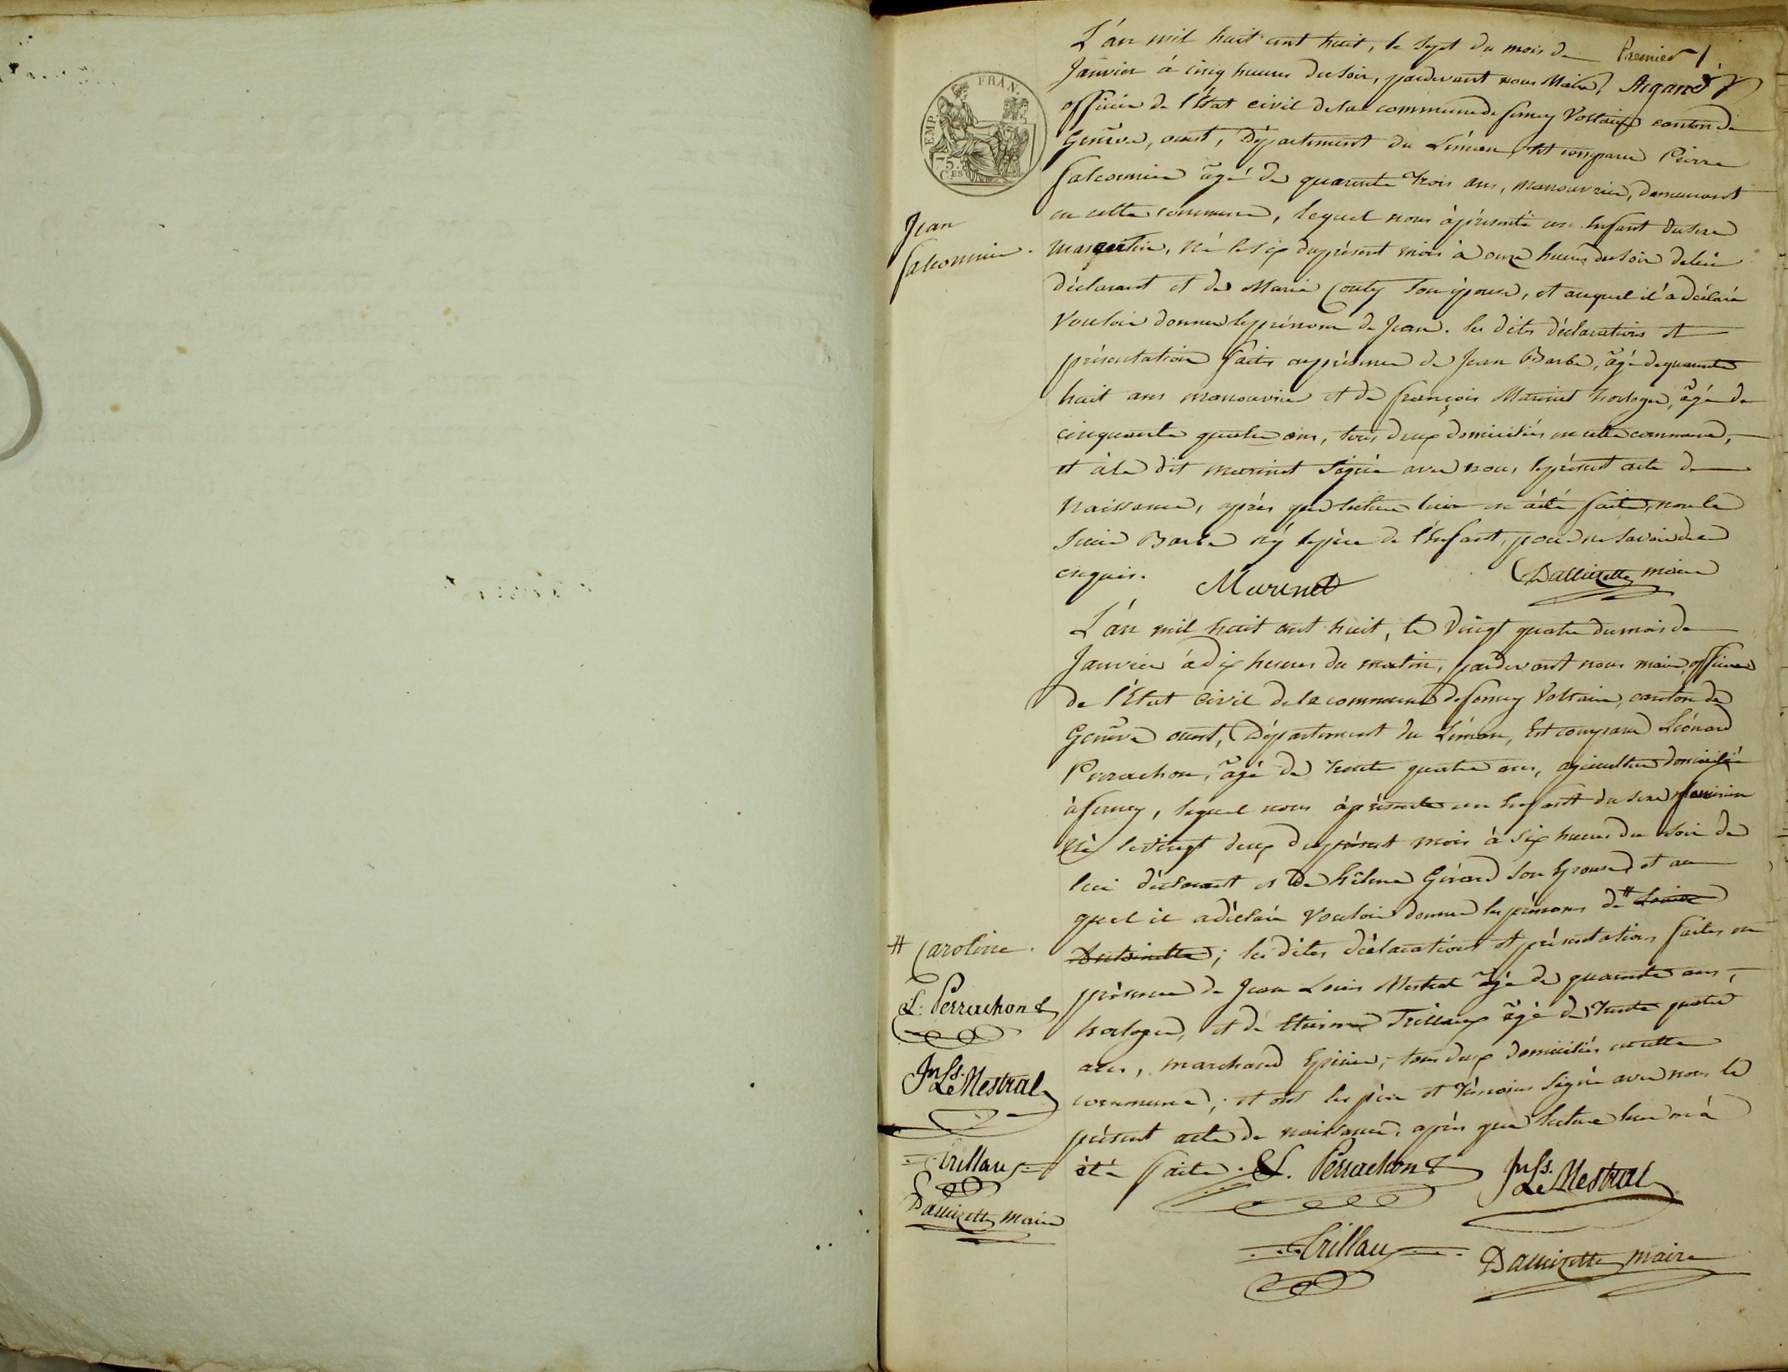 Premier /
Argand
EMP. FRAN.
L'án mil huit cent huit, le sept du mois de
Janvier à cinq heures du soir, pardevant nous Maire,
officier de l'état civil de la commune de ferney Voltaire canton de
Genêve, ouest, Département du Léman, est comparu Pierre
falconnier âgé de quarante trois ans, manouvrier, demeurant
en cette commune, lequel nous à présenté un Enfant du sexe
masculin, né le six du présent mois à onze heures du soir de lui
déclarant et de Marie Couty son épouse, et auquel il a déclaré
Vouloir donner le prénom de Jean. les dites déclarations et
présentation faites en présence de Jean Barbe, âgé de quarante
huit ans manouvrier et de françois Marinet horloger, âgé de
cinquante quatre ans, tous deux domiciliés en cette commune,
et à le dit marinet signé avec nous, le présent acte de
Naissance, après que lecture leur en à été faite, non le
Sieur Barbe ny le père de l'Enfant, pour ne savoir de ce
enquis.
Marinet
Dallizette maire
Jean
falconnier.
L'án mil huit cent huit, le Vingt quatre du mois de
Janvier à dix heures du matin, pardevant nous maire, officier
de l'Etat Civil de la commune de ferney Voltaire, canton de
Genêve ouest, Département du Léman, Est comparu Léonard
Perrachon, âgé de trente quatre ans, agriculteur domicilié
à ferney, lequel nous à présenté un Enfant du sexe féminin
Né le vingt deux du présent mois à six heures du soir de
lui déclarant et De hélène Girard son Epouse, et au
quel il a déclaré Vouloir donner les prénoms de # Louise
Antoinette; les dites déclarations et présentation faites en
présence de Jean Louis Mestral âgé de quarante ans,
horloger, et de Etienne Trillaux âgé de trente quatre
ans, marchand Epicier, tous deux domiciliés en cette
commune, et ont les père et témoins signé avec nous le
présent acte de naissance, après que lecture leur en à
été faite.
L. Perrachon
Jn Ls. Mestral
Trillaux
Dallizette maire
# Caroline.
L. Perrachon
Jn Ls. Mestral
Trillaux
Dallizette maire